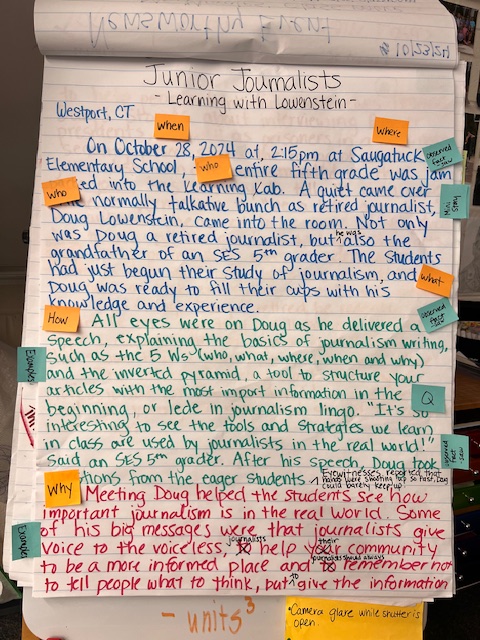 Newsworthy Event
10/23/24
Junior Journalists
- Learning with Lowenstein -
Westport, CT
When
Where
On October 28, 2024 at 2:15pm at Saugatuck
observed fact saw
Elementary School, entire fifth grade was jam
Who
ed into the Learning Lab. A quiet came over
Who
normally talkative bunch as retired journalist,
Mini
Doug Lowenstein, came into the room. Not only
was Doug a retired journalist, but he was also the
grandfather of an SES 5th grader. The students
had just begun their study of journalism, and
What
Doug was ready to fill their cups with his
knowledge and experience.
observed fact saw
How
All eyes were on Doug as he delivered a
speech, explaining the basics of journalism writing,
such as the 5 Ws (who, what, where, when and why)
Examples
and the inverted pyramid, a tool to structure your
articles with the most import information in the
Q
beginning, or lede in journalism lingo. "It's so
interesting to see the tools and strategies we learn
in class are used by journalists in the real world!"
observed fact saw
said an SES 5th grader. After his speech, Doug took
tions from the eager students. Eyewitnesses reported that
hands were shooting up so fast, Doug
could barely keep up!
Why
Meeting Doug helped the students see how
important journalism is in the real world. Some
of his big messages were that journalists give
Example
voice to the voiceless, journalists help their community
to be a more informed place and journalists should always remember not
to tell people what to think, but to give the information
- units³
•Camera glare while shutter is
open.